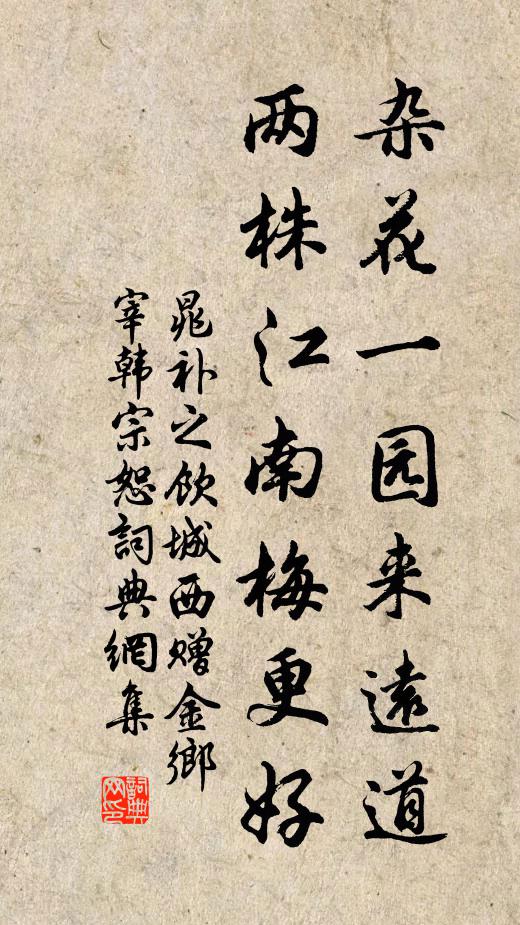 杂花一园来遠道
两株江南梅更好
晁补之飲城西赠金鄉
宰韩宗恕詞典網集
詞典网印